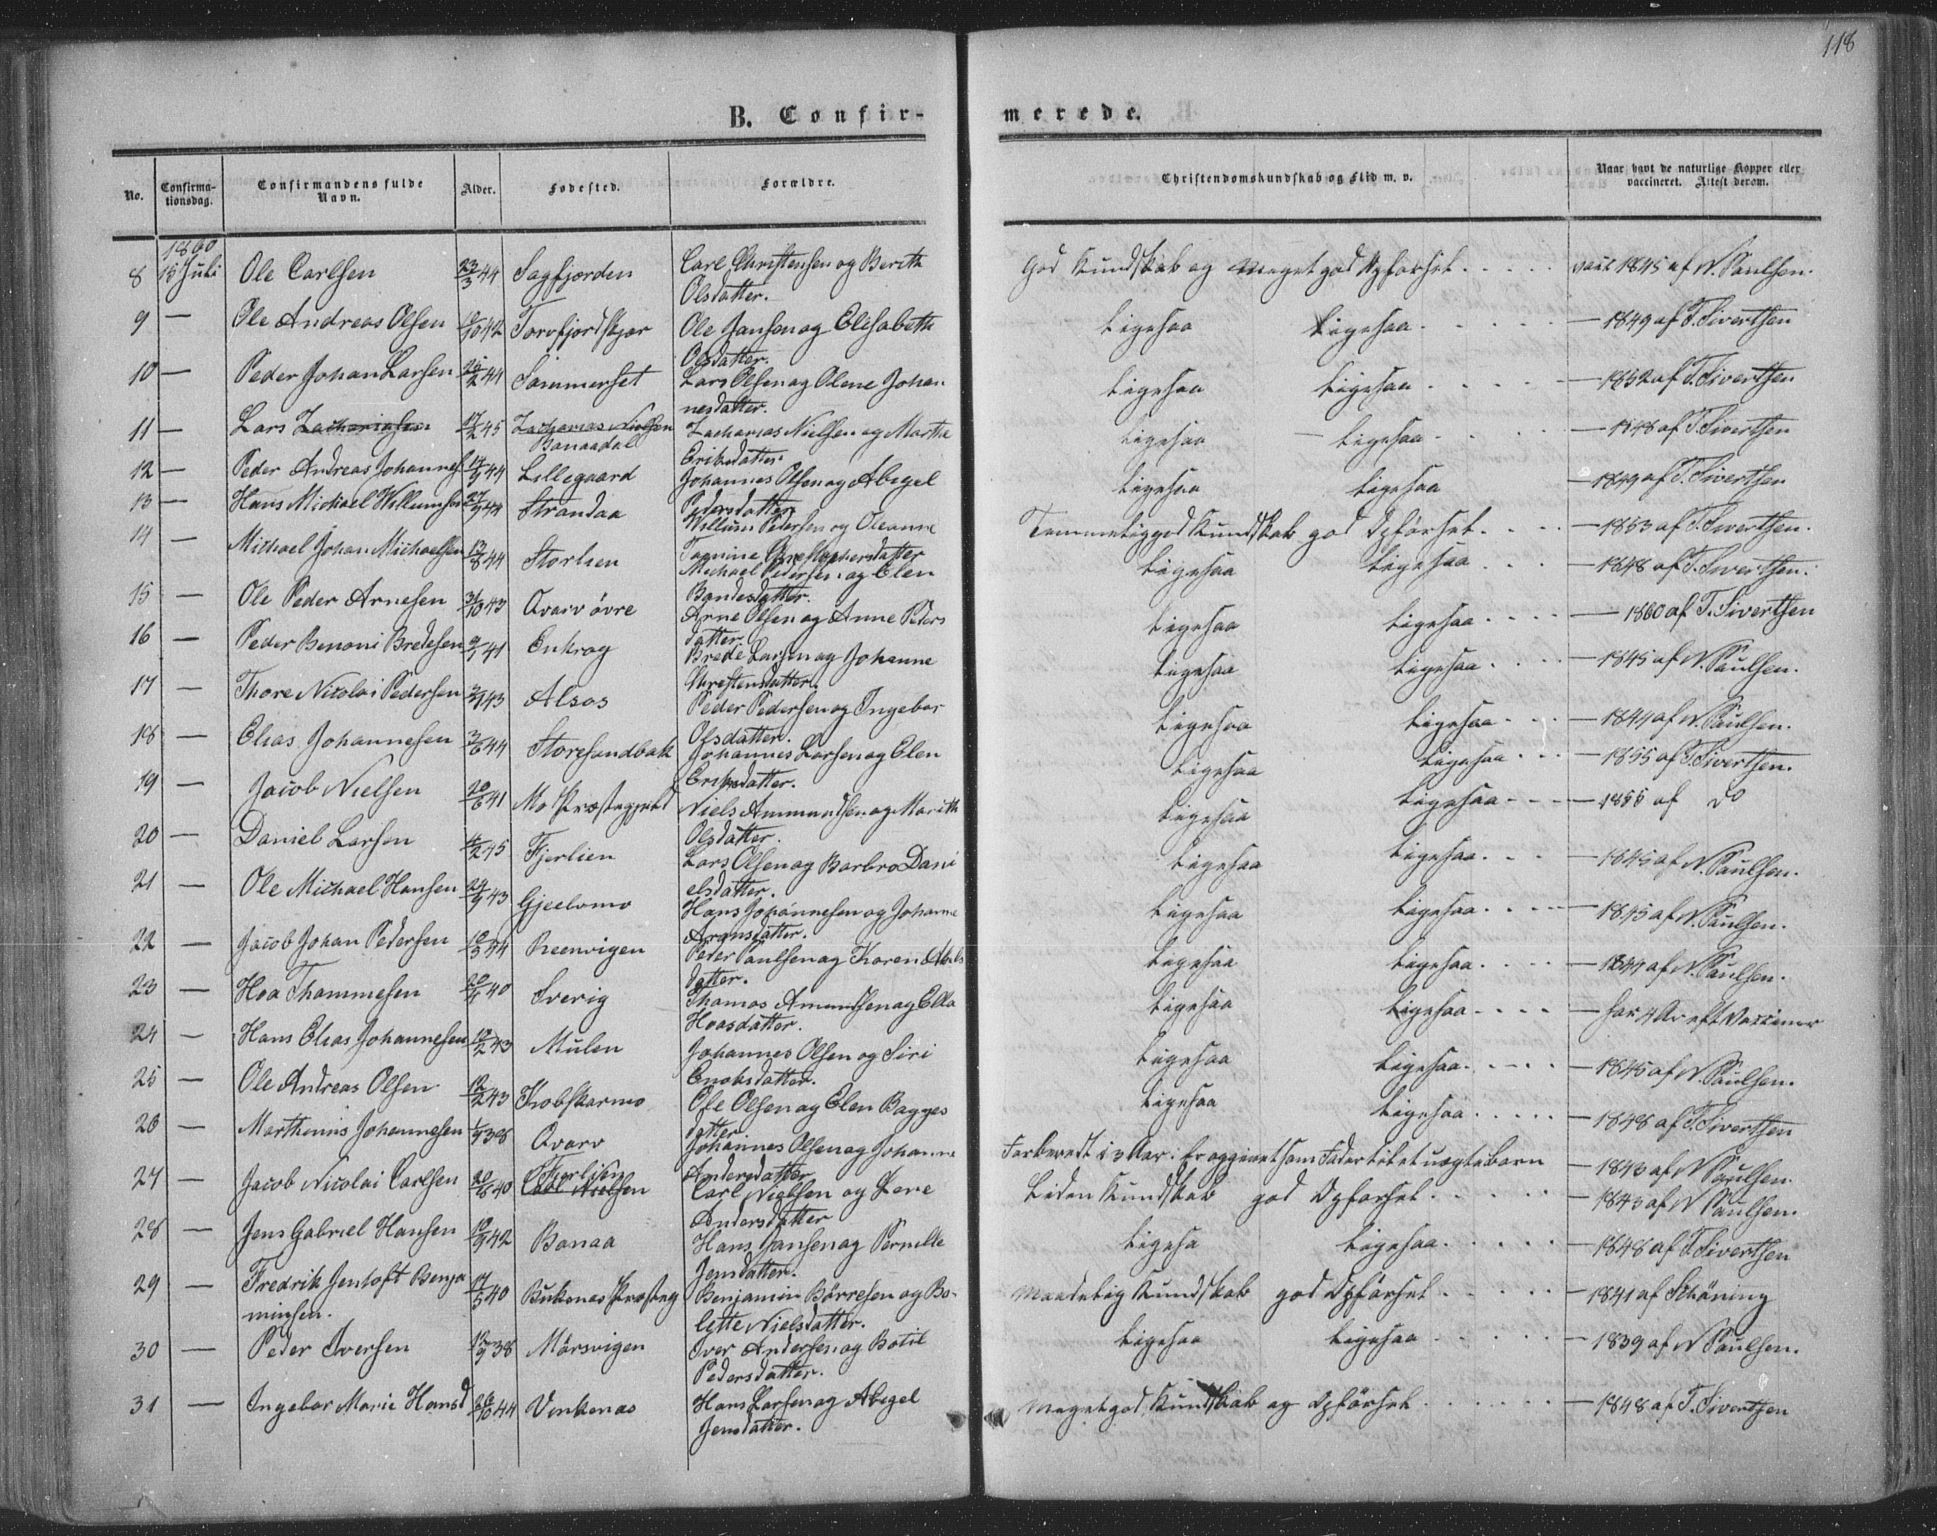 118
B. Confirmerede.
No. Confirmationsdag. Confirmandens fulde Navn. Alder. Fødested. Forældre. Christendomskundskab og Flid m. v. Naar havt de naturlige Kopper eller vaccineret. Attest derom.
1860
8 15 Juli Ole Carlsen 23/3 44 Sagfjorden Carl Christensen og Berith Olsdatter. God Kundskab og Meget god Opførsel. vacc 1845 af N. Paulsen.
9 — Ole Andreas Olsen 42 Ole Jansen og Elisabeth Olsdatter. Ligesaa Ligesaa — 1849 af T. Sivertsen
10 — Peder Johan Larsen 44 Sommerset Lars Olsen og Olene Johannesdatter. Ligesaa Ligesaa — 1852 af T. Sivertsen
11 — Lars Zachariasen 45 Zacharias Nielsen Bonaadal Zacharias Nielsen og Martha Eriksdatter. Ligesaa — Ligesaa — 1848 af T. Sivertsen
12 — Peder Andreas Johannes 44 Lillegaard Johannes Olsen og Abigel Pedersdatter Ligesaa Ligesaa — 1849 af T. Sivertsen
13 — Hans Michael Willumsen 44 Strandaa Willum Pedersen og Oleanne Christophersdatter Temmelig god Kundskab god Opførsel. — 1853 af T. Sivertsen.
14 — Michael Johan Michaelsen 13/8 44 Storlien Michael Pedersen og Elen Ligesaa Ligesaa — 1848 af T. Sivertsen.
15 — Ole Peder Arnesen 31/10 43 Qvarv övre Arne Olsen og Anne Pedersdatter Ligesaa Ligesaa — 1860 af T. Sivertsen
16 — Peder Benoni Bredesen 41 Enkrog Brede Larsen og Johanne Christensdatter. Ligesaa Ligesaa — 1845 af N. Paulsen.
17 — Thore Nicolai Pedersen 43 Alsos Peder Pedersen og Ingebor Olsdatter. Ligesaa Ligesaa — 1844 af N. Paulsen.
18 — Elias Johannesen 44 Storesandbak Johannes Larsen og Elen Eriksdatter. Ligesaa Ligesaa — 1855 af T. Sivertsen.
19 — Jacob Nielsen 20/6 41 Mo Præstegjeld Niels Ammundsen og Marith Olsdatter. Ligesaa Ligesaa — 1855 af do
20 — Daniel Larsen 45 Fjerlien Lars Olsen og Barbro Danielsdatter. Ligesaa Ligesaa — 1845 af N. Paulsen.
21 — Ole Michael Hansen 43 Gjeelomo Hans Johannesen og Johanne Aronsdatter. Ligesaa Ligesaa — 1845 af N. Paulsen.
22 — Jacob Johan Pedersen 44 Reenvigen Peder Paulsen og Karen datter. Ligesaa Ligesaa — 1844 af N. Paulsen.
23 — Hoa Thommesen 40 Sverig Thomas Amundsen og Ella Hoasdatter. Ligesaa Ligesaa — for
24 — Hans Elias Johannesen 43 Mulen Johannes Olsen og Siri Enoksdatter. Ligesaa Ligesaa — 1845 af N. Paulsen.
25 — Ole Andreas Olsen 43 Kobskarmo Ole Olsen og Elen Baggesdatter Ligesaa Ligesaa — 1848 af T. Sivertsen
26 — Marthinus Johannesen 38 Qvarv Johannes Olsen og Johanne Andersdatter Forberedt i 3 Aar: Er opgivet som Fader til et uægte barn — 1843 af N. Paulsen.
27 — Jacob Nicolai Carlsen 40 Fjerlien Carl Nielsen Carl Nielsen og Lene Andersdatter Liden Kundskab god Opførsel. — 1843 af N. Paulsen.
28 — Jens Gabriel Hansen 42 Bonaa Hans Jansen og Pernille Jensdatter. Ligesa Ligesaa — 1848 af T. Sivertsen
29 — Fredrik Jentoft Benjaminsen. 17/5 40 Buksnes Præsteg Benjamin Börresen og Bolette Nielsdatter. Maadelig Kundskab god Opførsel — 1841 af Schöning
30 — Peder Iversen 38 Mörsvigen Iver Andersen og Botil Pedersdatter. Ligesaa Ligesaa — 1839 af N. Paulsen.
31 — Ingebor Marie Hansd 44 Vinkenas Hans Larsen og Abigel Jensdatter. Meget god Kundskab og Opførsel — 1848 af T. Sivertsen